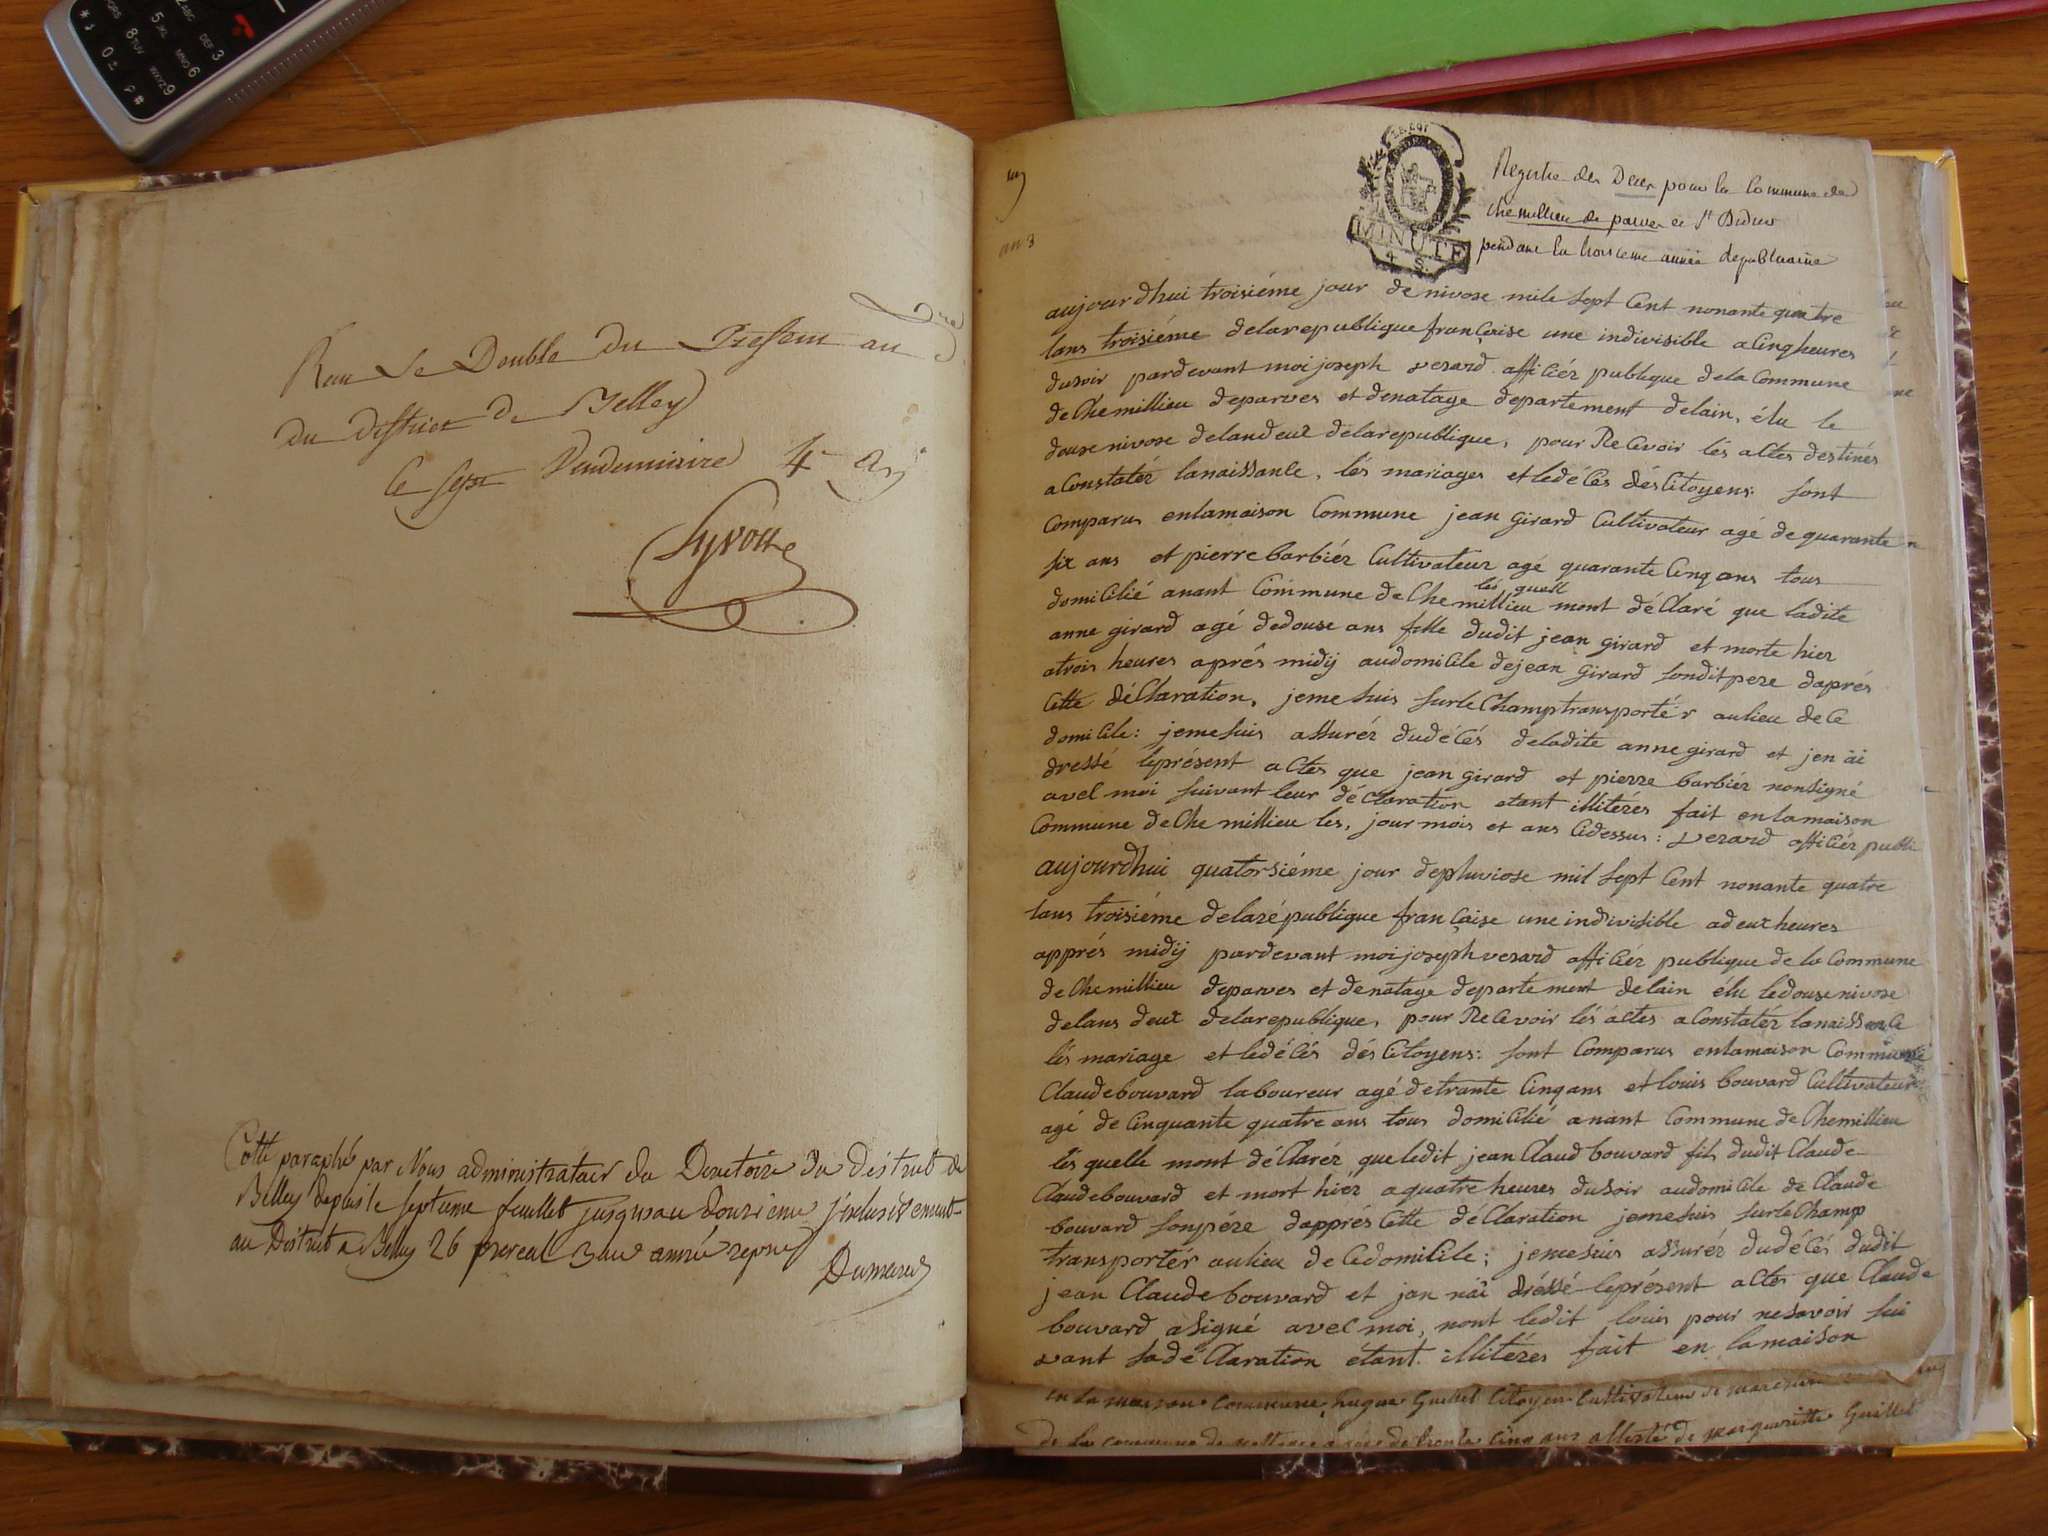 Reçu Le Double du Present au
du district de Belley
le sept Vendemiaire 4e
Cotté paraphé par Nous administrateur du Directoire du district de
Belley depuis le septieme feuillet jusqu'au douzieme inclusivement
au District a Belley 26 prereal 3eme année
Dumarest
an 3
LA LOI
MINUTE
4 S.
Registre des Deces pour la Commune de
chemillieu de parves et St Didier
pendant la troisieme année republicaine
aujourdhui troisiéme jour de nivose mile sept Cent nonante quatre
lans troisiéme delarepublique françoise une indivisible a Cinq heures
dusoir pardevant moi joseph verard officiér publique dela Commune
de Chemillieu deparves et denatage departement delain, élu le
douse nivose delandeux delarepublique, pour ReCevoir lés aCtes destinés
a Constatér lanaissanCe, lés mariages et ledéCés désCitoyens: sont
Comparus enlamaison Commune jean girard Cultivateur agé de quarante
six ans et pierre barbiér Cultivateur agé quarante Cinq ans tous
domiCilié anant Commune de Chemillieu lés quell mont déClaré que ladite
anne girard agé dedouse ans fille dudit jean girard et morte hier
atrois heures aprés midij audomiCile dejean girard sondit pere daprés
Cette déClaration, jeme suis surle Champ transportér aulieu de Ce
domiCile: jemesuis assurér dudéCés deladite anne girard et jen ai
dressé leprésent aCtes que jean girard et pierre barbiér nonsigné
aveC moi suivant leur déClaration etant illitéres fait enlamaison
Commune de Chemillieu les, jour mois et ans Cidessus: verard officiér publi
aujourdhui quatorsiéme jour depluviose mil sept Cent nonante quatre
lans troisiéme delarépublique françoise une indivisible adeux heures
apprés midij pardevant moi joseph verard officiér publique de la Commune
de Chemillieu deparves et denatage departement delain élu ledouse nivose
delans deux delarepublique, pour ReCevoir lés aCtes aConstater lanaissanCe
lés mariage et ledéCés désCitoyens: sont Comparus enlamaison Commune
Claude bouvard laboureur agé detrante Cinq ans et louis bouvard Cultivateur
agé de Cinquante quatre ans tous domiCilié anant Commune de Chemillieu
lés quelle mont déClarér que ledit jean Claud bouvard fils dudit Claude
Claude bouvard et mort hiér aquatre heures dusoir audomiCile de Claude
bouvard sonpére dapprés Cette déClaration jemesuis surle Champ
transportér aulieu de Cedomicile; jemesuis assurér dudéCés dudit
jean Claude bouvard et jan nai dréssé leprésent aCtes que Claude
bouvard asigné aveC moi, nont ledit louis pour nesavoir sui
vant sadéClaration étant illitéres fait en lamaison
en la maison Commune hugue Guillet Citoyen Cultivateur
de la commune de trente Cinq ans de margueritte Guillet